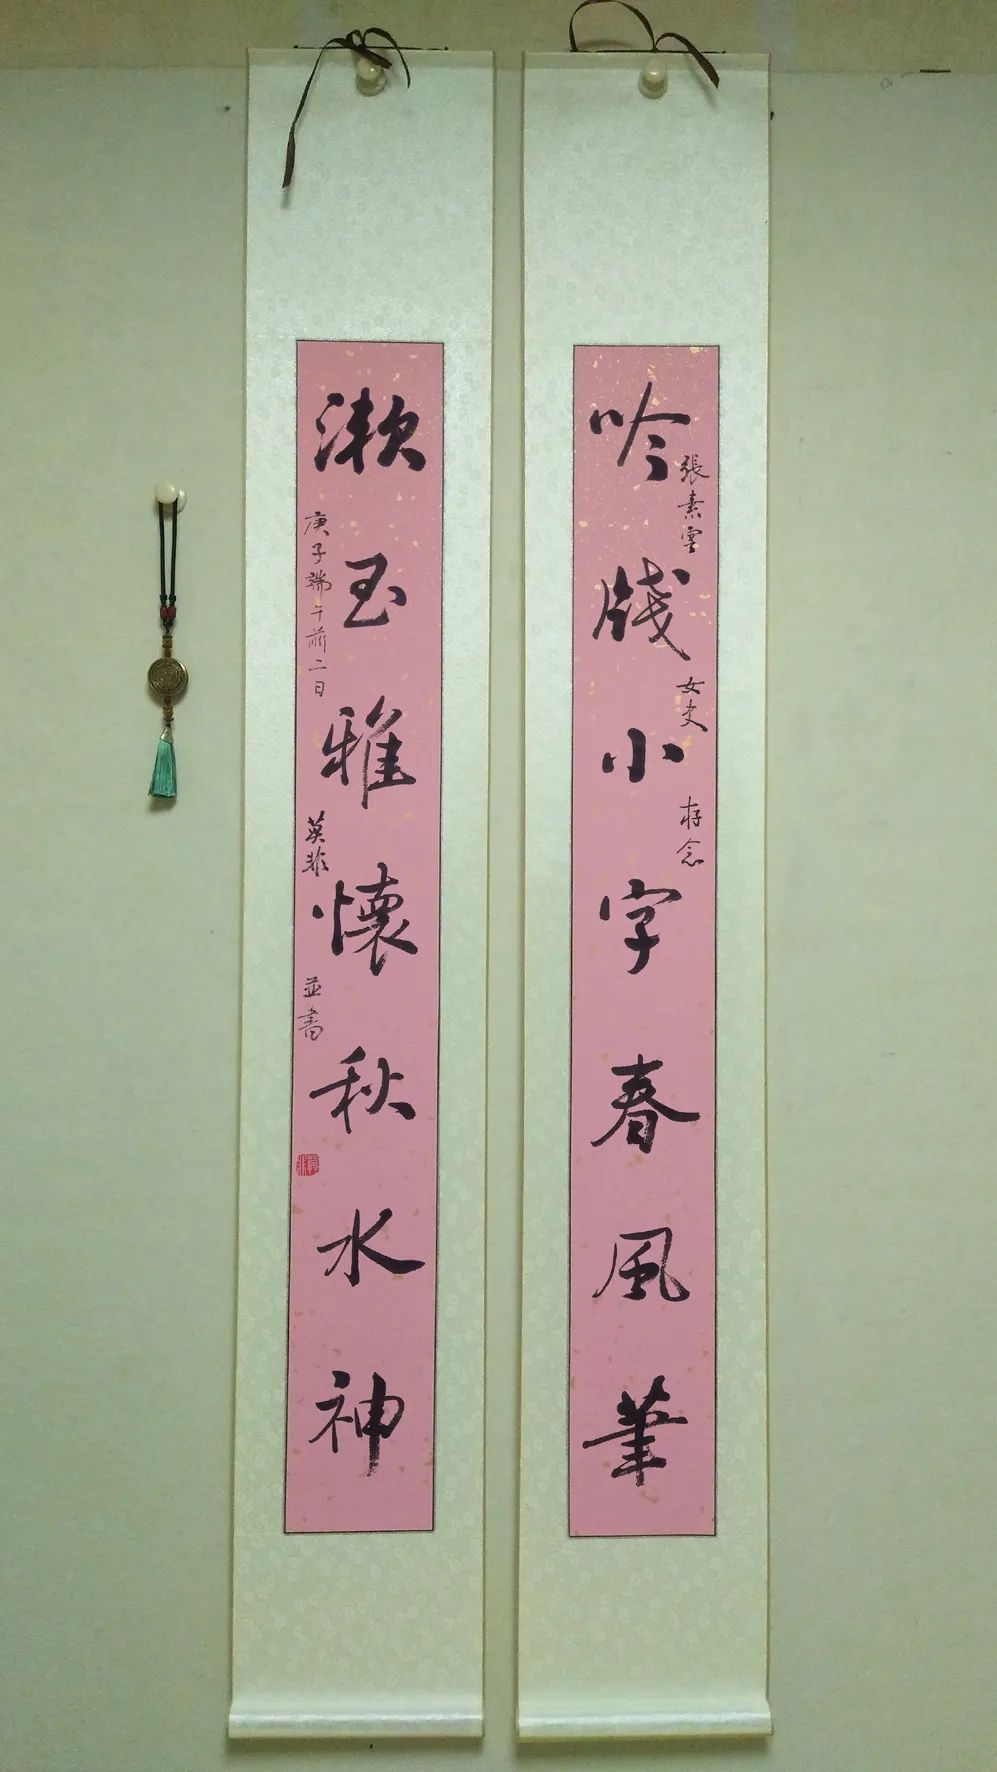 吟牋小字春風筆
張素雲 女史 存念
漱玉雅懷秋水神
庚子端午前二日 莫非 並書